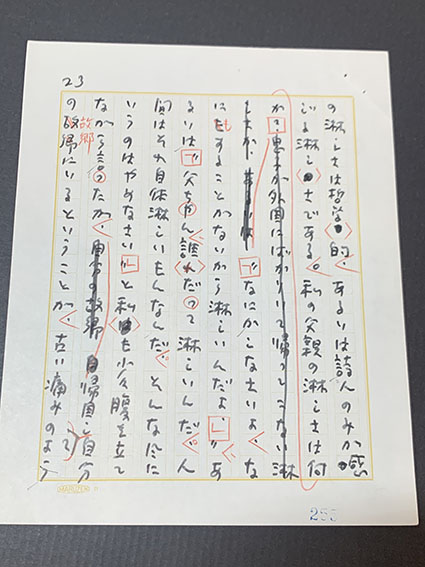 23
の淋しさは哲学的、あるいは詩人のみが感
じる淋しさである。私の父親の淋しさは何
か
外国にばかりいて帰ってこない淋
「なにかしなさいよ、な
にもすることがないから淋しいんだよ」あ
るいは「父ちゃん、誰だって淋しいんだ。人
間はそれ自体淋しいもんなんだ、そんなに
いうのはやめなさい」と私も小々腹を立て
ながら言ったが、帰国し自分
の故郷にいるということが、古い痛みのよう
故郷
255